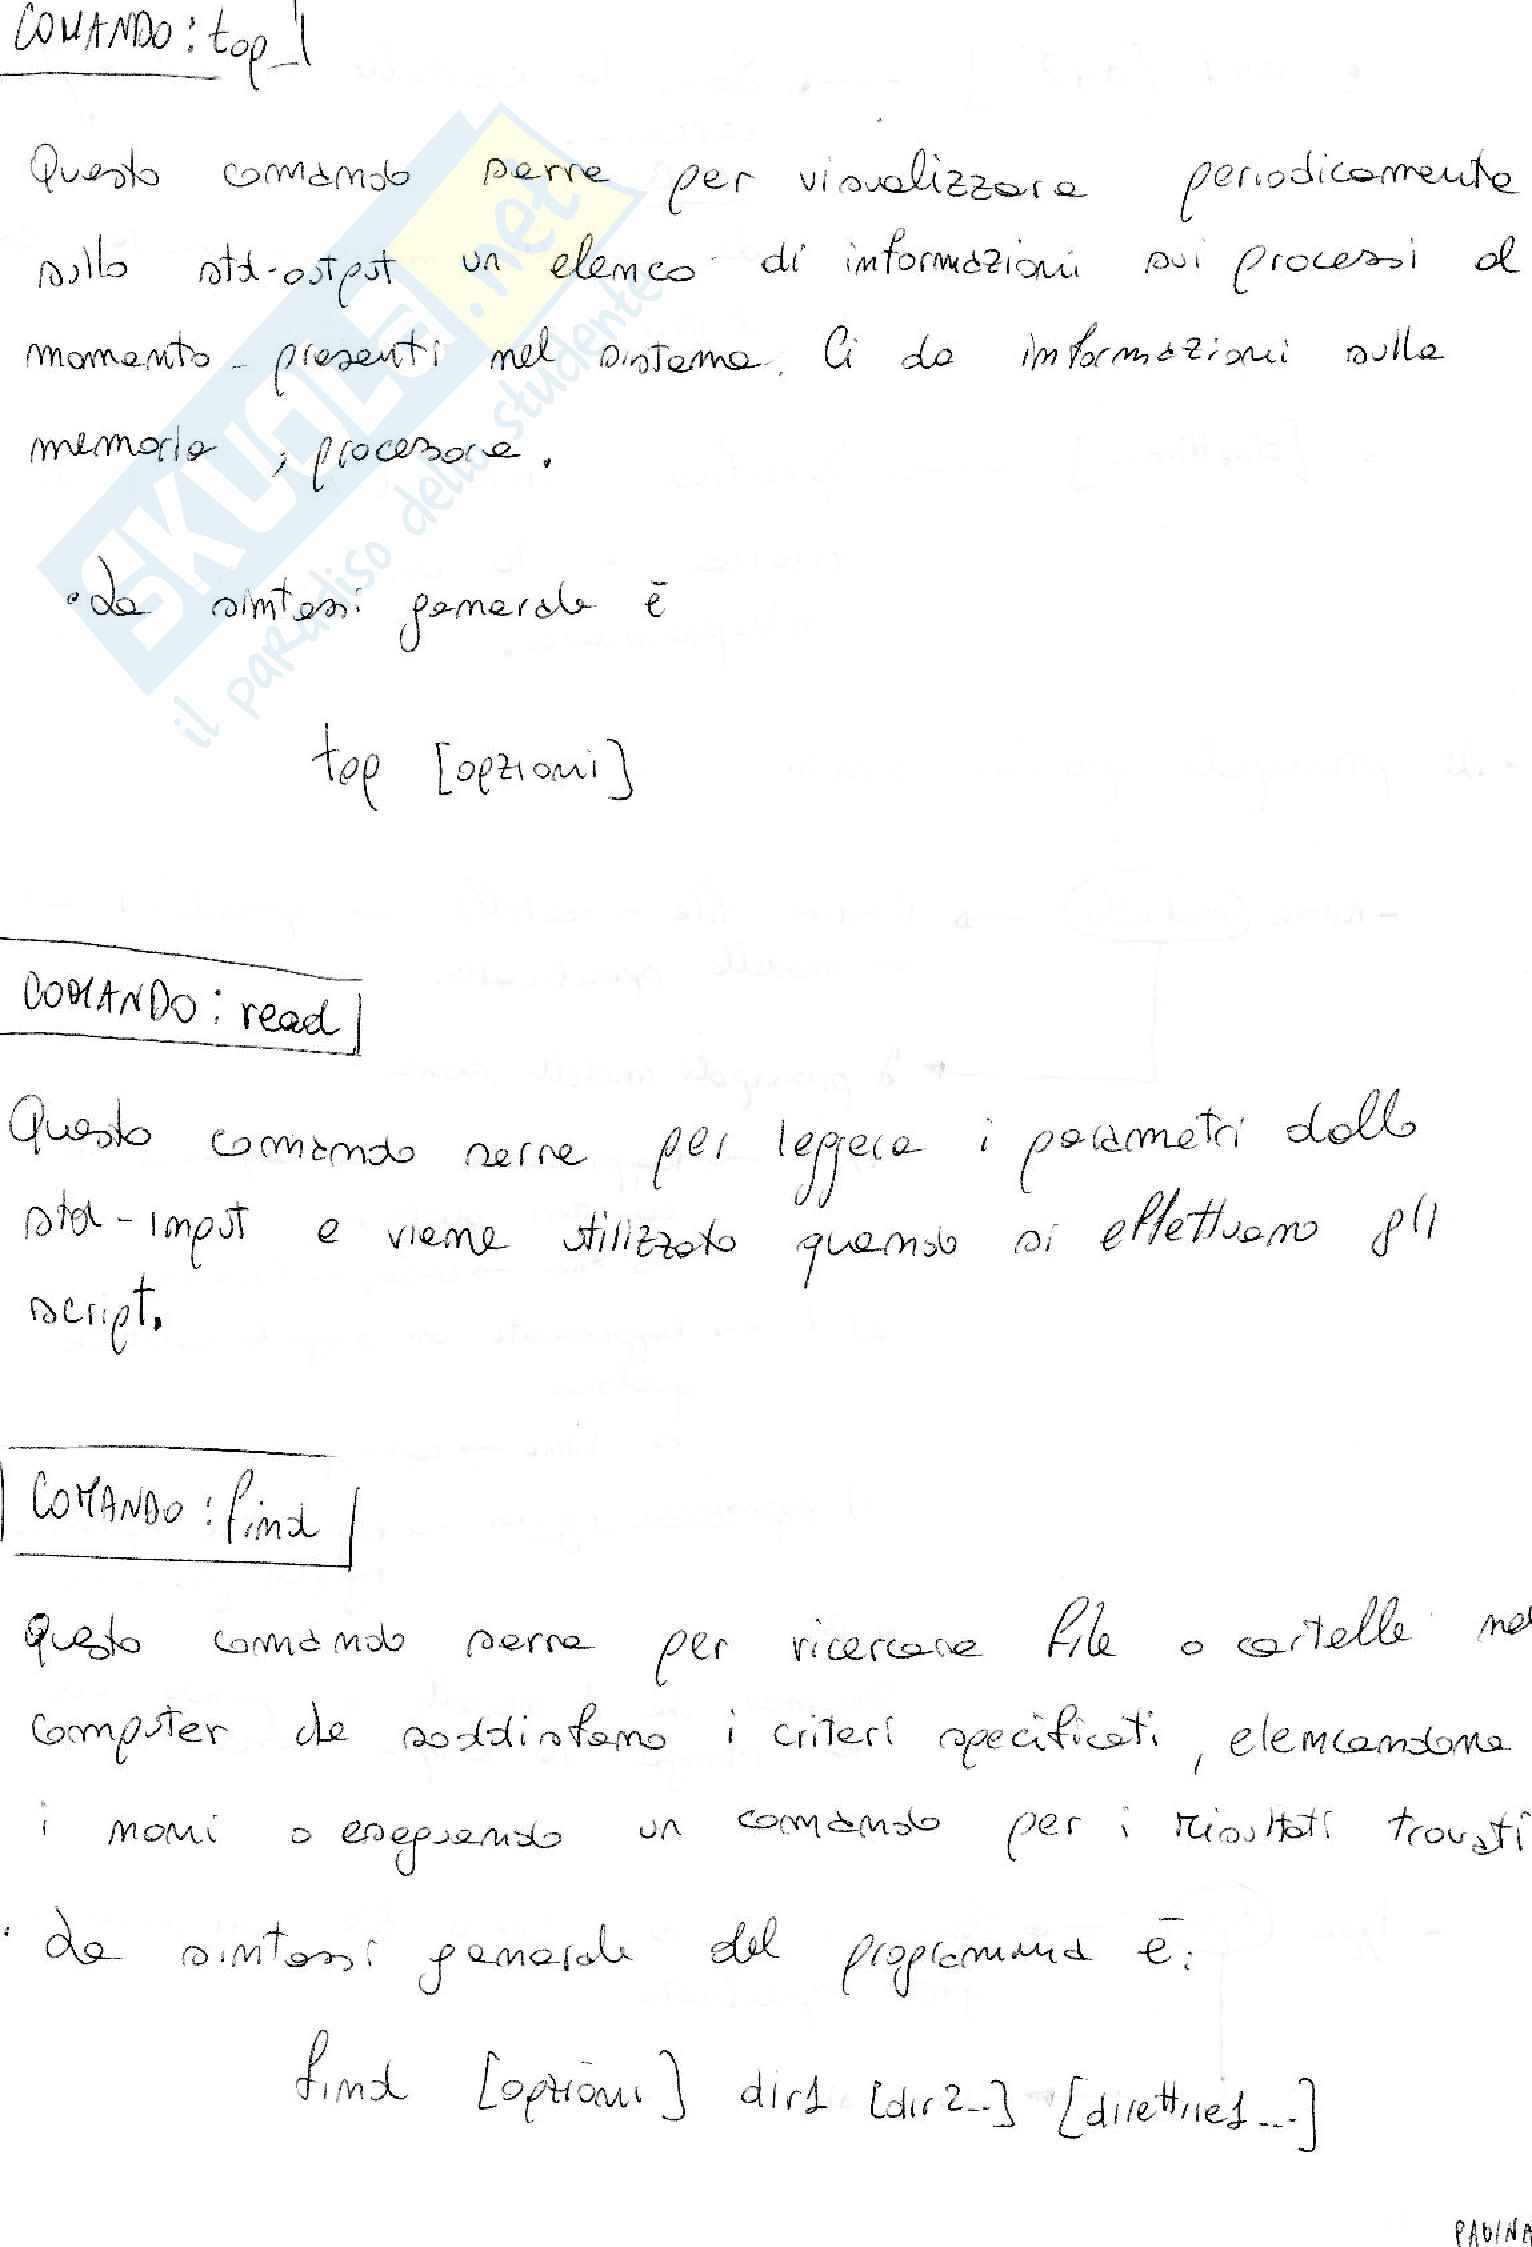 COMANDO: top
Questo comando serve per visualizzare periodicamente
sullo std-output un elenco di informazioni sui processi al
momento presenti nel sistema. Ci da informazioni sulla
memoria, processore.
• La sintassi generale è
top [opzioni]
COMANDO: read
Questo comando serve per leggere i parametri dallo
std-input e viene utilizzato quando si effettuano gli
script.
COMANDO: find
Questo comando serve per ricercare file o cartelle nel
computer che soddisfano i criteri specificati, elencandone
i nomi o eseguendo un comando per i risultati trovati
• La sintassi generale del programma è:
find [opzioni] dir1 [dir2...] [direttive1...]
PAGINA
SKUOLA.net
il paradiso dello studente